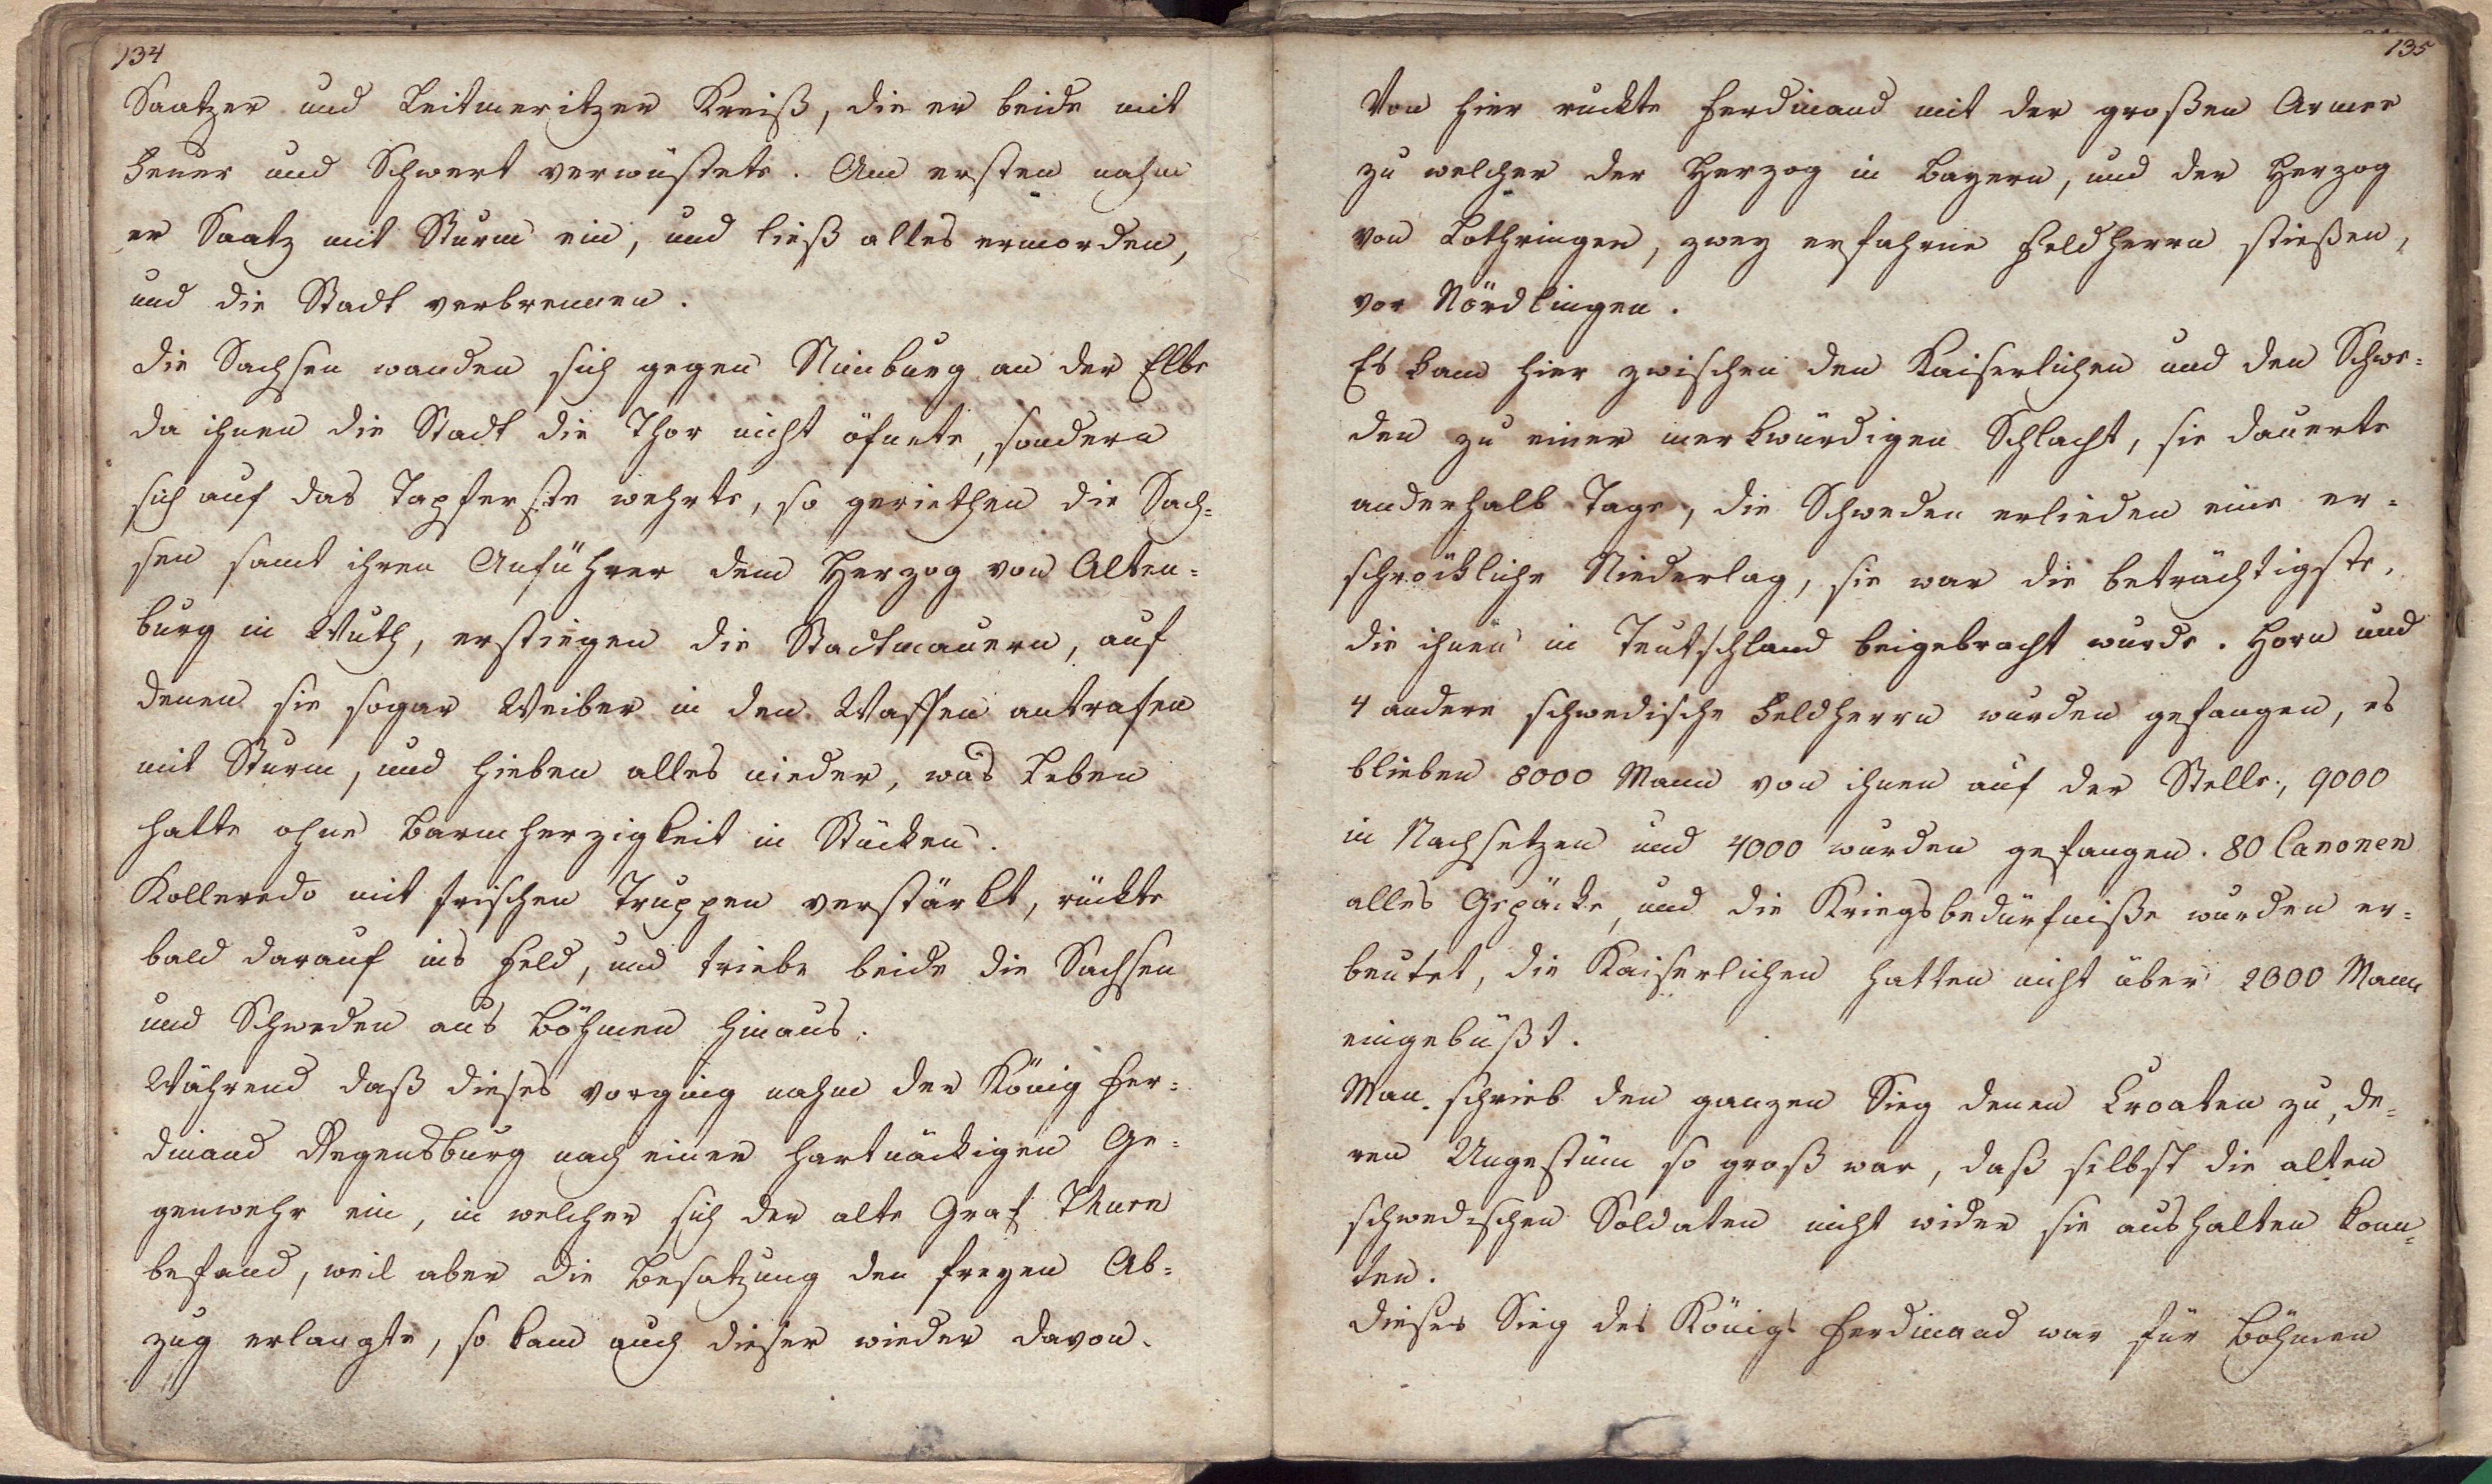 134
Saatzer und Leitmeritzer Kreiß, die er beide mit
Feuer und Schwert verwüstete. Am ersten nahm
er Saatz mit Sturm ein, und ließ alles ermorden,
und die Stadt verbrennen.
Die Sachsen wanden sich gegen Nimburg an der Elbe
da ihnen die Stadt die Thor nicht öfnete, sondern
sich auf das Tapferste wehrte, so geriethen die Sach=
sen samt ihren Anführer dem Herzog von Alten=
burg in Wuth, erstiegen die Stadtmauern, auf
denen sie sogar Weiber in den Waffen antrafen
mit Sturm, und hieben alles nieder, was Leben
hatte ohne Barmherzigkeit in Stücken.
Kolleredo mit frischen Truppen verstärkt, rückte
bald darauf ins Feld, und triebe beide die Sachsen
und Schweden aus Böhmen hinaus.
Während daß dieses vorging nahm der König Fer=
dinand Regensburg nach einer hartnäckigen Ge=
genwehr ein, in welcher sich der alte Graf Thurn
befand, weil aber die Besatzung den freyen Ab=
zug erlangte, so kam auch dieser wieder davon.
135
Von hier ruckte Ferdinand mit der großen Armee
zu welcher der Herzog in Bayern, und der Herzog
von Lothringen, zwey erfahrne Feldherrn stießen,
vor Nördlingen.
Es kam hier zwischen den Kaiserlichen und den Schwe=
den zu einer merkwürdigen Schlacht, sie dauerte
anderhalb Tage, die Schweden erlieden eine er=
schröckliche Niederlag, sie war die beträchtigste,
die ihnen in Teutschland beigebracht wurde. Horn und
4 andere schwedische Feldherrn wurden gefangen, es
blieben 8000 Mann von ihnen auf der Stelle, 9000
in Nachsetzen und 4000 wurden gefangen. 80 Canonen
alles Gepäcke, und die Kriegsbedürfniße wurden er=
beutet, die Kaiserlichen hatten nicht über 2000 Mann
eingebüßt.
Man schrieb den ganzen Sieg denen Croaten zu, de=
ren Ungestüm so groß war, daß selbst die alten
schwedischen Soldaten nicht wider sie aushalten konn=
ten.
Dieser Sieg des Königs Ferdinand war für Böhmen